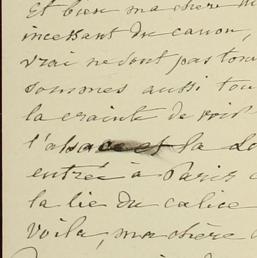 Et bien ma chère
incessant du canon,
vrai ne dont pas tou
sommes aussi tou
la crainte de voir
l'alsace et la Lo
entrée à Paris
la lie du calice
voila, ma chère